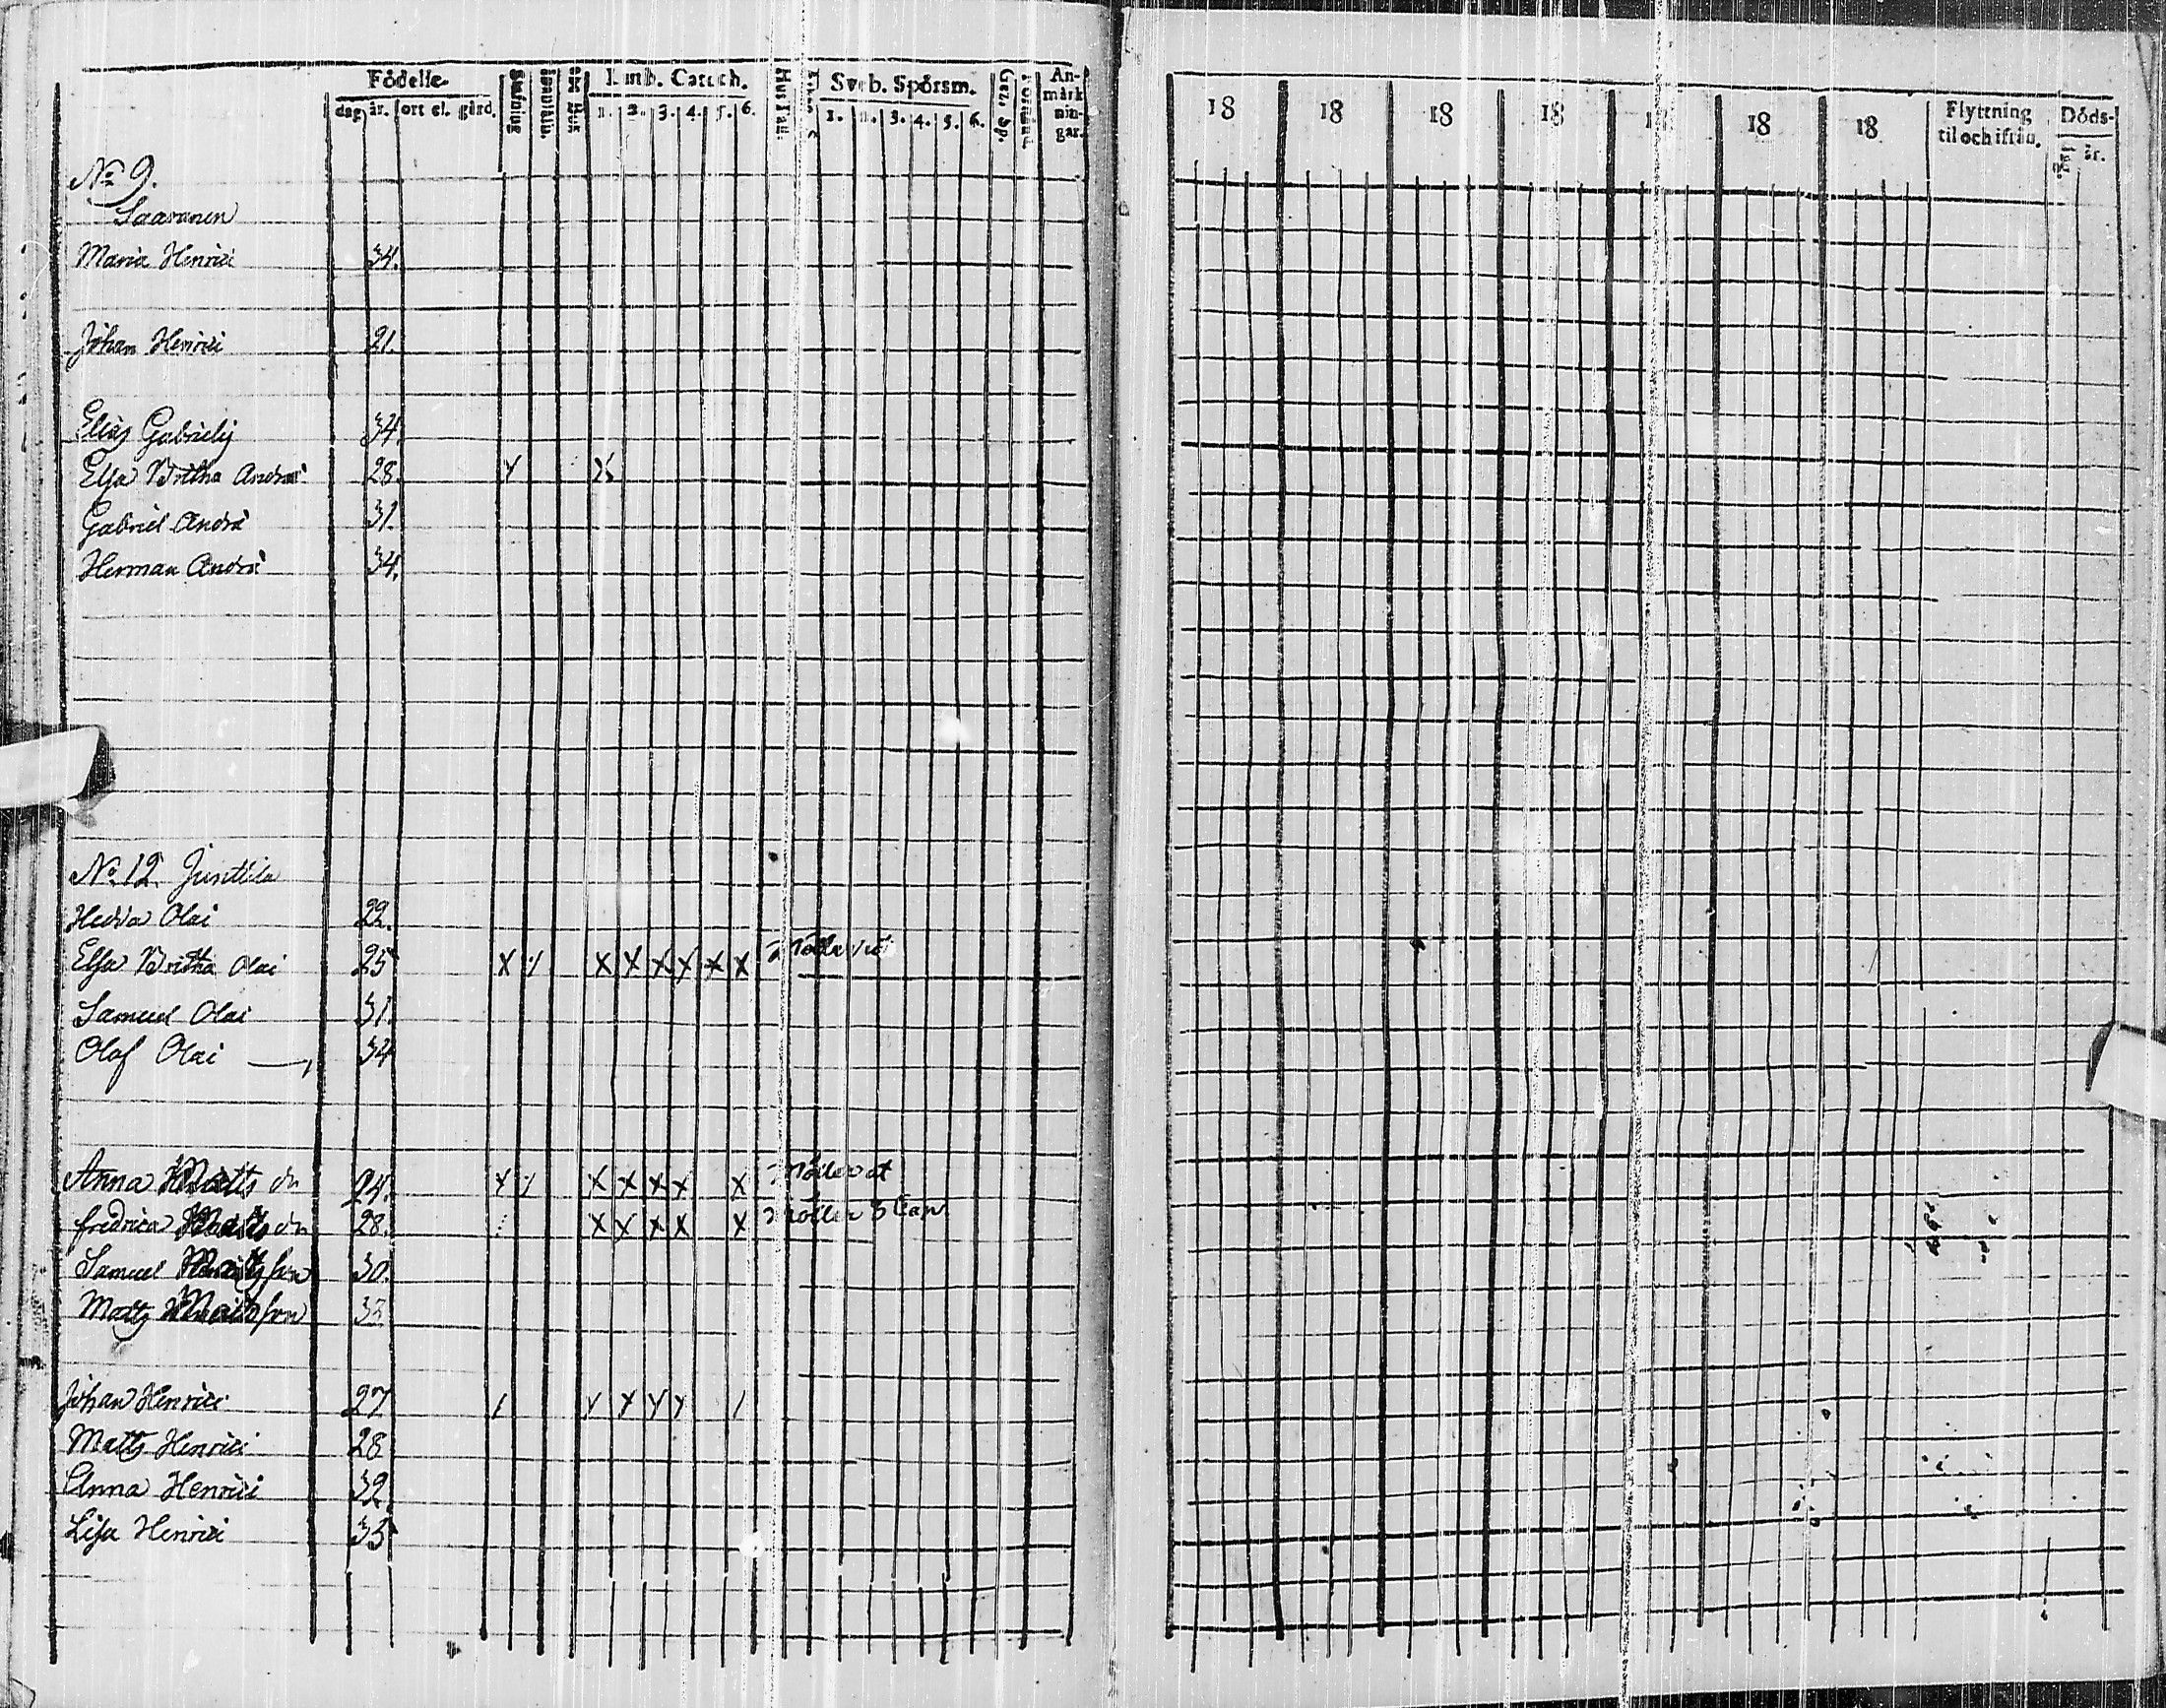 Födelse-
dag
år.
ort el. gård.
Lunb. Catech.
1. 2. 3. 4. 5. 6.
Sveb. Spörsm.
1. 2. 3. 4. 5. 6.
An-
märk
nin-
gar.
18 18 18 18 18 18
Flyttning
til och ifrån.
Döds-
år.
No 9.
Saaranen
Maria Henrici 34.
Johan Henrici 21.
Elias Gabrielis 34.
Elsa Britha Andræ 28. x x
Gabriel Andræ 31.
Herman Andræ 34.
No 12. Junttila
Hedda Olai 22.
Elsa Britha Olai 25 x x x x x x x x
Samuel Olai 31.
Olof Olai 34
Anna Matts dr 24. x x x x x x x
Fredrica Matts dr 28. x x x x x
Samuel Matts son 30.
Matts Matts son 33
Johan Henrici 27 / x x x x /
Matts Henrici 28
Anna Henrici 32.
Lisa Henrici 35